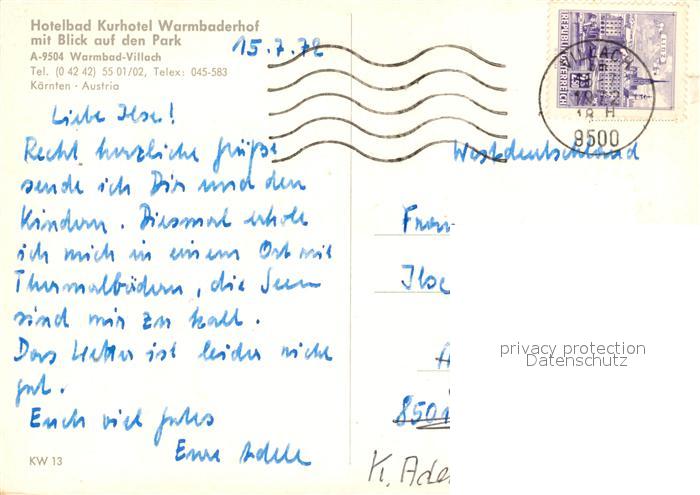 Hotelbad Kurhotel Warmbaderhof
mit Blick auf den Park
A-9504 Warmbad-Villach
Tel. (0 42 42) 55 01/02, Telex: 045-583
Kärnten · Austria
15.7.72
Liebe Ilse!
Recht herzliche Grüße
sende ich Dir und den
Kindern. Diesmal erhole
ich mich in einem Ort mit
Thermalbädern, die Seen
sind mir zu kalt.
Das Wetter ist leider nicht
gut.
Euch viel gutes
Eure Adele
KW 13
REPUBLIK ÖSTERREICH
VILLACH
18 H
9500
Westdeutschland
Frau
Ilse
8501
K. Ade
privacy protection
Datenschutz